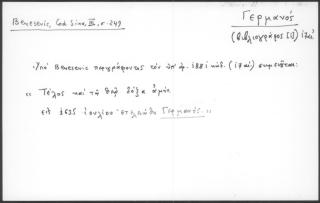 Benesevic, Cod. Sina, III, σ. 249
Γερμανός
(βιβλιογράφος [13]) ιζ΄ αἰ.
Ὑπὸ Benesevic περιγράφοντος τὸν ὑπ' ἀρ. 1881 κώδ. (ιζ αἰ) σημειοῦται:
"Τέλος καὶ τῷ θεῷ δόξα ἀμήν
εἰς 1635 ἰουλίου ἐτελειώθη Γερμανός."